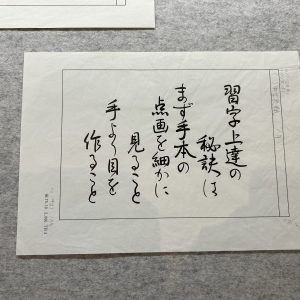 習字上達の
秘訣は
まず手本の
点画を細かに
見ること
手より目を
作ること